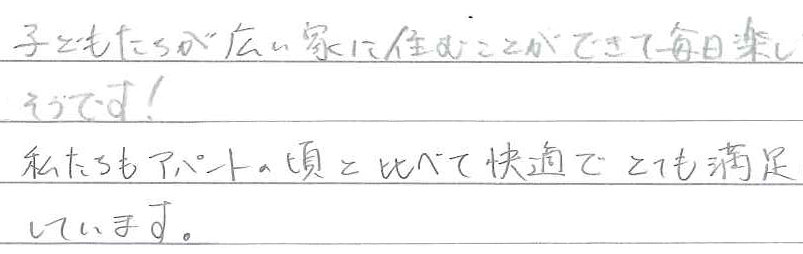 子どもたちが広い家に住むことができて毎日楽し
そうです！
私たちもアパートの頃と比べて快適でとても満足
しています。